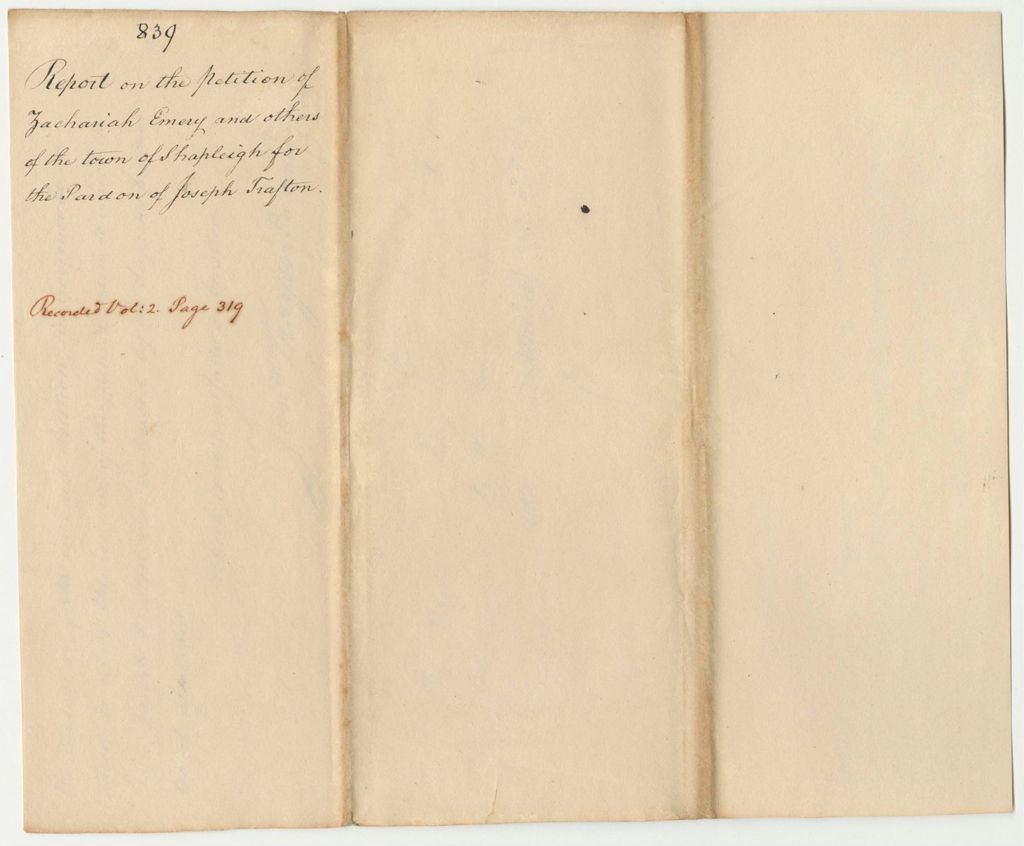 839
Report on the petition of
Zachariah Emery and others
of the town of Shapleigh for
the Pardon of Joseph Trafton.
Recorded Vol: 2. Page 319